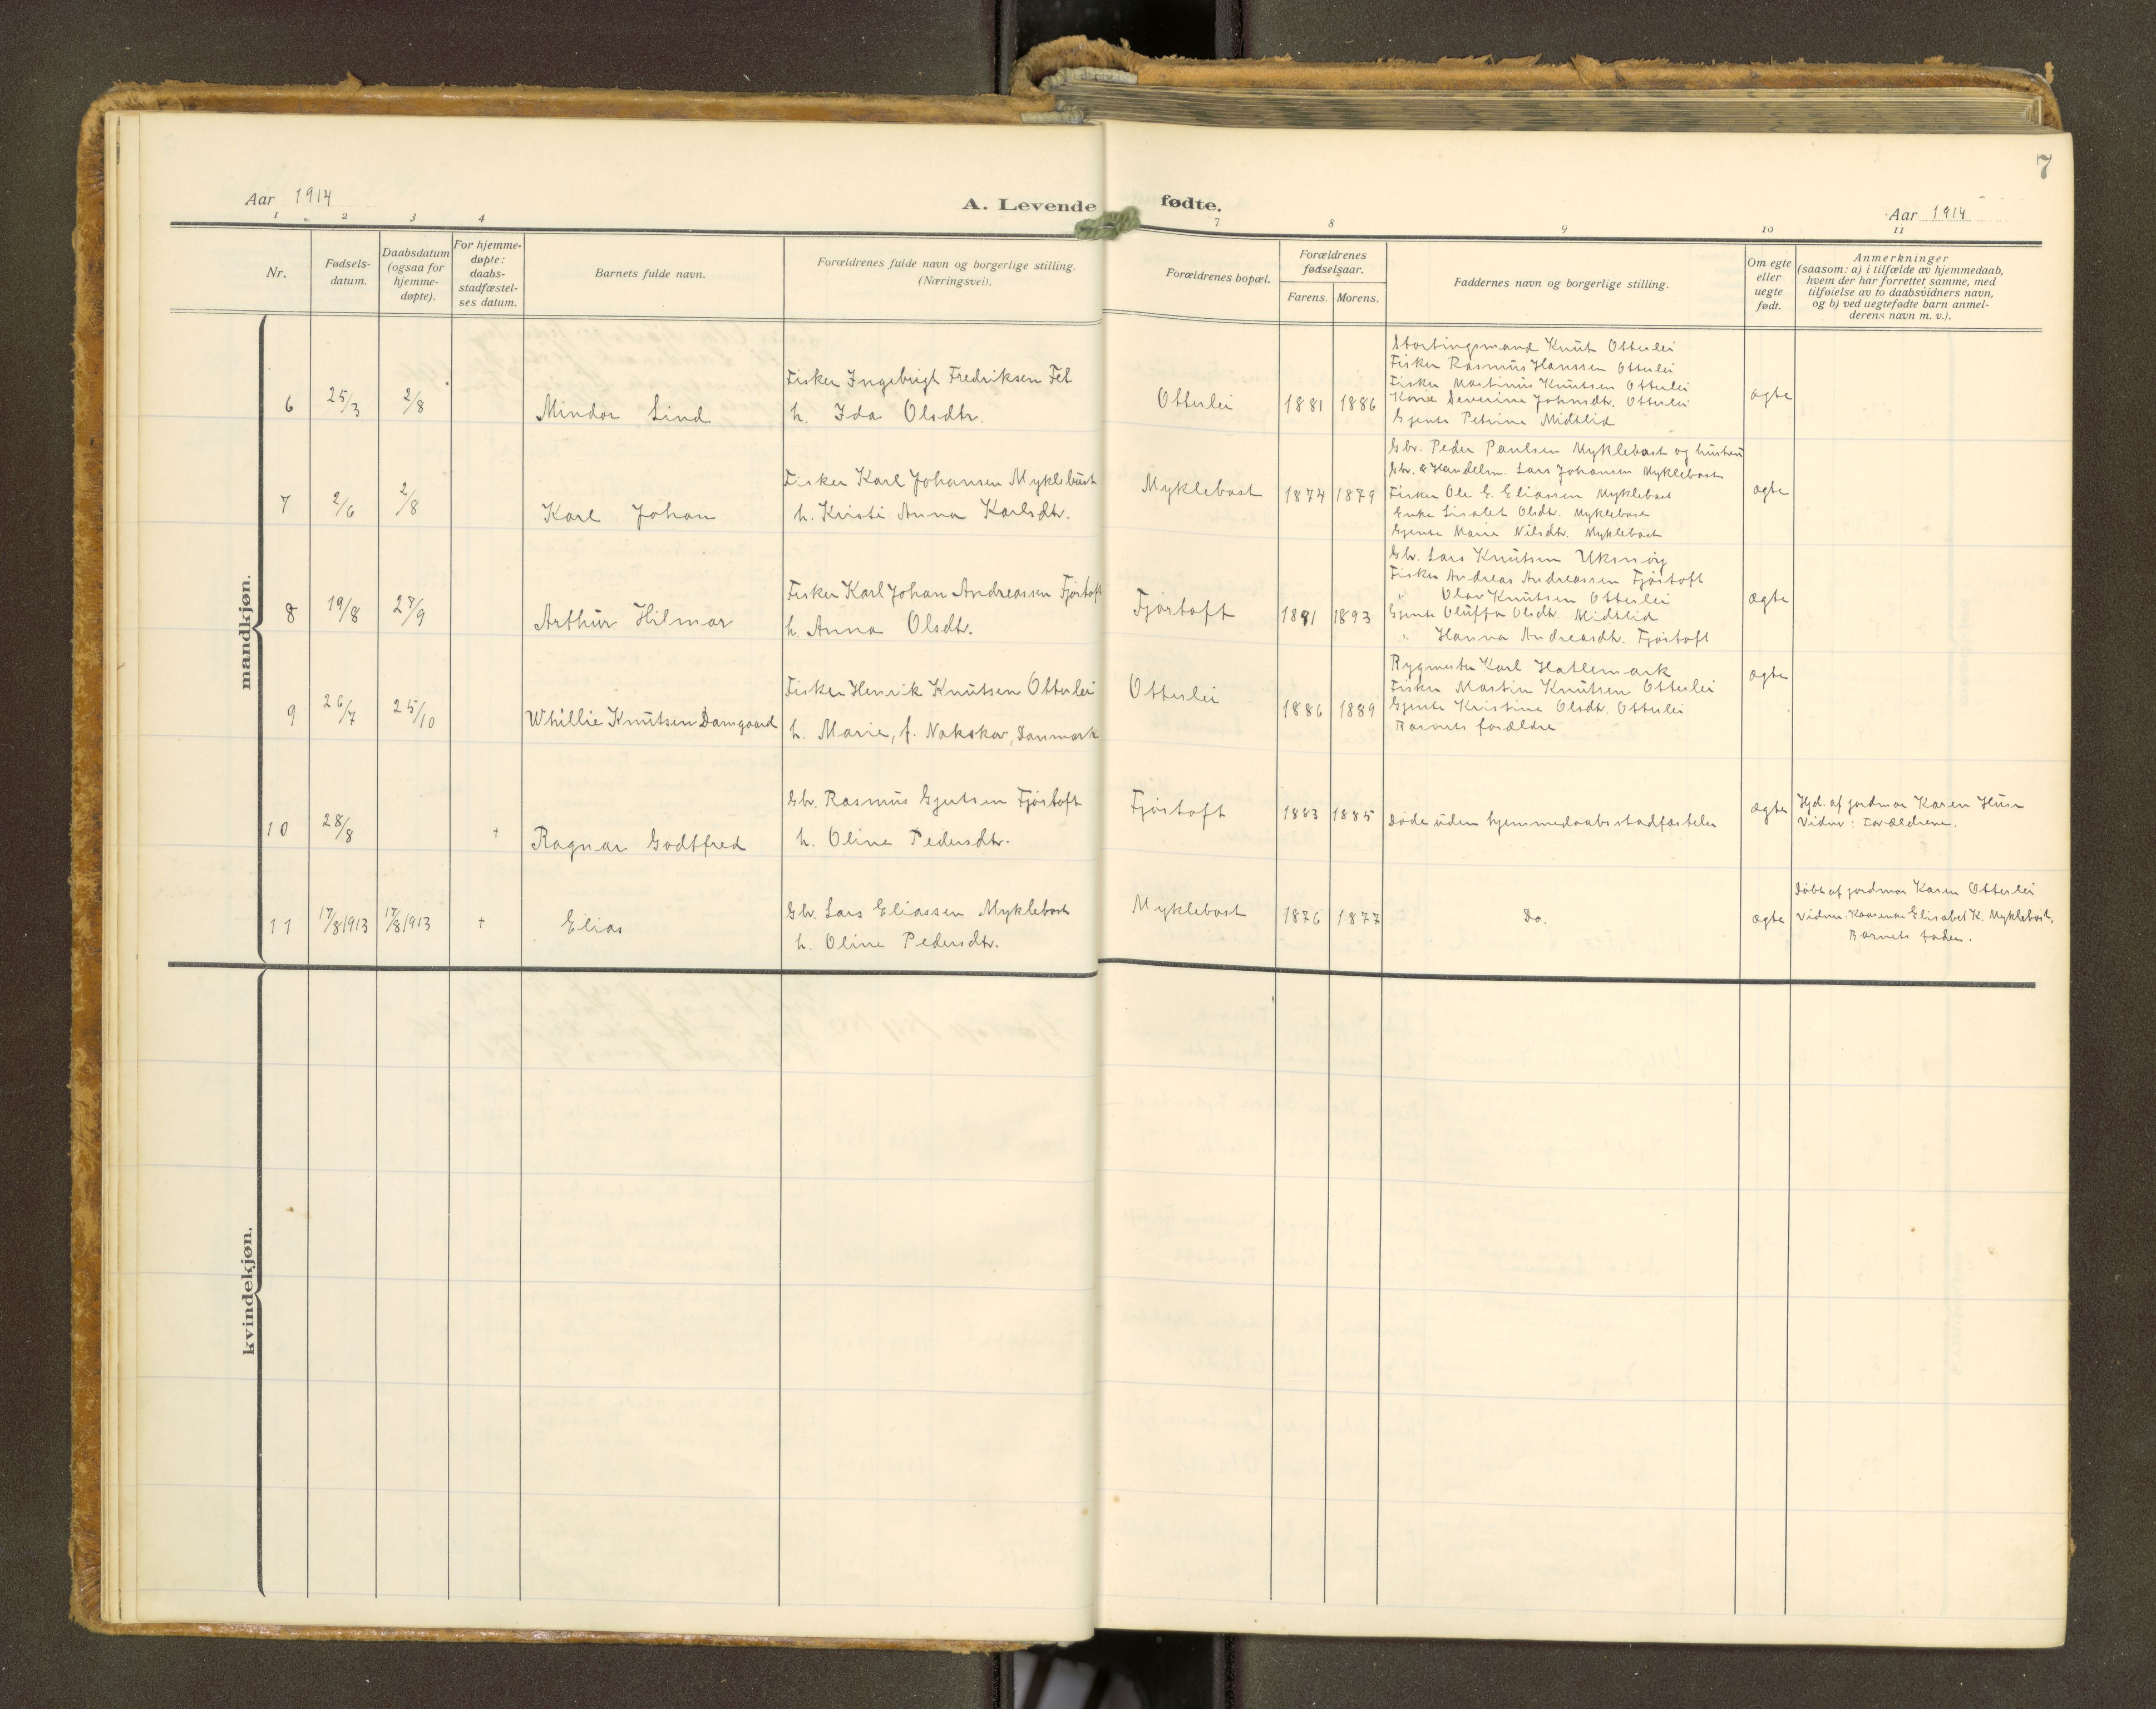 7
Aar 1914
A. Levende fødte.
Aar 1914
1 2 3 4 7 8 9 10 11
Nr.
Fødsels-
datum.
Daabsdatum
(ogsaa for
hjemme-
døpte).
For hjemme-
døpte:
daabs-
stadfæstel-
ses datum.
Barnets fulde navn.
Forældrenes fulde navn og borgerlige stilling.
(Næringsvei).
Forældrenes bopæl.
Forældrenes
fødselsaar.
Farens. Morens.
Faddernes navn og borgerlige stilling.
Om egte
eller
uegte
født.
Anmerkninger
(saasom: a) i tilfælde av hjemmedaab,
hvem der har forrettet samme, med
tilføielse av to daabsvidners navn,
og b) ved uegtefødte barn anmel-
derens navn m. v.).
mandkjøn.
6 25/3 2/8
Mindor Lind
Fisker Ingebrigt Fredriksen Fel
h. Ida Olsdtr.
Otterlei 1881 1886
Stortingsmand Knut Otterlei
Fisker Rasmus Hanssen Otterlei
Fisker Martinus Knutsen Otterlei
Kone Severine Johnsdtr. Otterlei
Gjente Petrine Midtlid
ægte
7 2/6 2/8
Karl Johan
Fisker Karl Johansen Myklebust
h. Kristi Anna Karlsdtr.
Myklebost 1874 1879
Gbr. Peder Paulsen Myklebost og hustru
Gbr. & Handelsm. Lars Johansen Myklebost
Fisker Ole E. Eliassen Myklebost
Enke Lisabet Olsdtr. Myklebost
Gjente Marie Nilsdtr. Myklebost
ægte
8 19/8 27/9
Arthur Hilmar
Fisker Karl Johan Andreassen Fjørtoft
h. Anna Olsdtr.
Fjørtoft 1891 1893
Gbr. Lars Knutsen Uksnøy
Fisker Andreas Andreassen Fjørtoft
" Olav Knutsen Otterlei
Gjente Oluffa Olsdtr. Midtlid
" Hanna Andreasdtr. Fjørtoft
ægte
9 26/7 25/10
Whillie Knutsen Damgaard
Fisker Henrik Knutsen Otterlei
h. Marie, f. Nakskov, Danmark
Otterlei 1886 1889
Rygmester Karl Hatlemark
Fisker Martin Knutsen Otterlei
Gjente Kristine Olsdtr. Otterlei
Barnets forældre
ægte
10 28/8 +
Ragnar Godtfred
Gbr. Rasmus Gjertsen Fjørtoft
h. Oline Pedersdtr.
Fjørtoft 1883 1885
Døde uden hjemmedaabsstadfæstelse
ægte
Hjd. af jordmor Karen Huse
Vidner: Forældrene.
11 17/8 1913 17/8 1913 +
Elias
Gbr. Lars Eliassen Myklebost
h. Oline Pedersdtr.
Myklebost 1876 1877
Do.
ægte
Døbt af jordmor Karen Otterlei
Vidner: Elisabet K. Myklebost,
Barnets fader.
kvindekjøn.